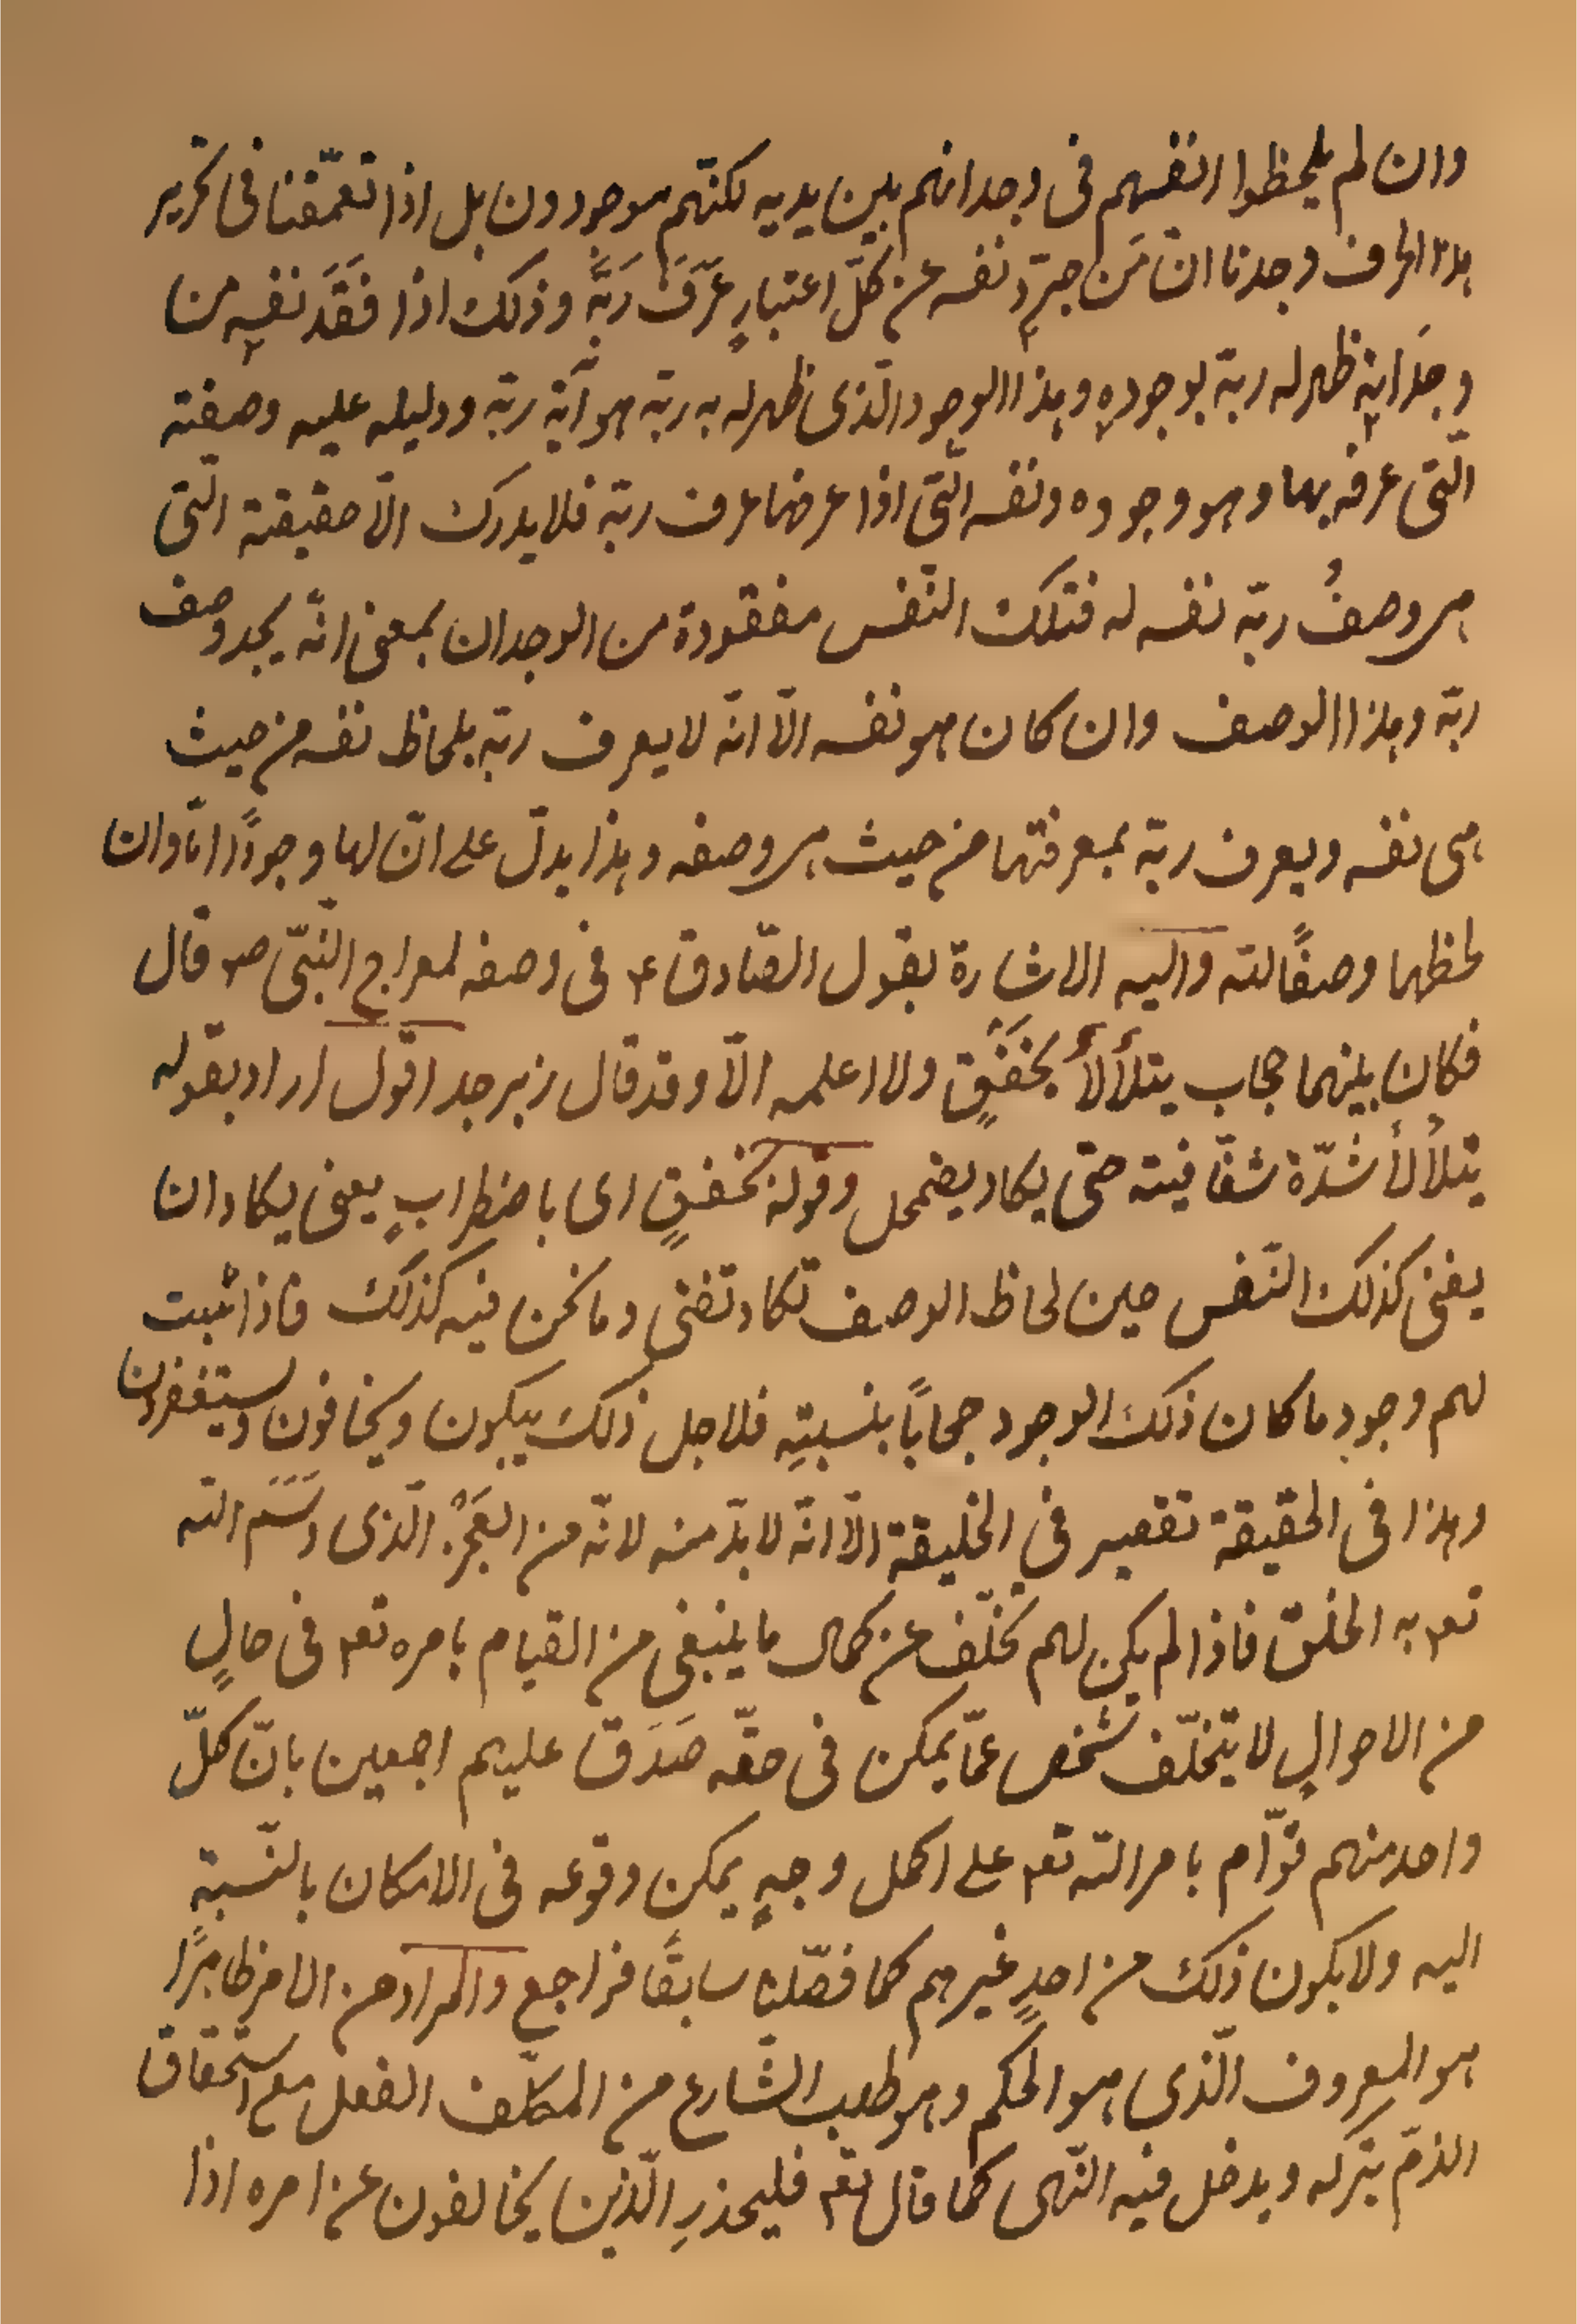 وان لم يلحظوا انفسهم فى وجدانهم بين يديه لكنّهم موجودون بل اذا تعمّقنا فى تحرير
هذا الحرف وجدنا انّ مَن جرّد نفسه عن كلّ اعتبارٍ عَرَفَ رَبَّهُ وذلك اذا فَقَدَ نفسه من
وجدانه ظهر له ربّه بوجوده وهذا الوجود الّذى ظهر له به ربّه هو آية ربّه ودليله عليه وصفته
الّتى عرفه بها وهو وجوده ونفسه الّتى اذا عرفها عرف ربّه فلا يدرك الّا حقيقته الّتى
هى وصفُ ربّه نفسه له فتلك النّفس مفقودة من الوجدان بمعنى انّه يجد وصف
ربّه وهذا الوصف وان كان هو نفسه الّا انّه لا يعرف ربّه بلحاظ نفسه من حيث
هى نفسه ويعرف ربّه بمعرفتها من حيث هى وصفه وهذا يدلّ على انّ لها وجودًا ما وان
لحظها وصفًا لله واليه الاشارة بقول الصّادق ع فى وصفه لمعراج النّبىّ ص قال
فكان بينهما حجاب يتلألأ بخَفَقٍ ولا اعلمه الّا وقد قال زبرجد اقول اراد بقوله
يتلألأ شدّة شفّافيته حتى يكاد يضمحل وقوله بخفقٍ اى باضطرابٍ يعنى يكاد ان
يفنى كذلك النّفس حين لحاظ الوصف تكاد تفنى وما نحن فيه كذلك فاذا ثبت
لهم وجود ما كان ذلك الوجود حجاباً بنسبتِهِ فلاجل ذلك يبكون ويخافون ويستغفرون
وهذا فى الحقيقة تقصير فى الخليقة الّا انّه لا بدّ منه لانّه من العَجْزِ الّذى وَسَمَ الله
تع به الخلق فاذا لم يكن لهم تخلّف عن كمال ما ينبغى من القيام بامره تع فى حالٍ
من الاحوالِ لا يتخلّف شخص عمّا يمكن فى حقّه صَدَقَ عليهم اجمعين بانّ كلّ
واحد منهم قوّام بامر الله تع على اكمل وجهٍ يمكن وقوعه فى الامكان بالنّسبة
اليه ولا يكون ذلك من احدٍ غيرهم كما فصّلنا سابقًا فراجع والمراد من الامر ظاهرًا
هو المعروف الّذى هو الحكم وهو طلب الشّارع من المكلّف الفعل مع استحقاق
الذمّ بتركه ويدخل فيه النّهى كما قال تع فليحذرِ الّذين يخالفون عن امره اذا